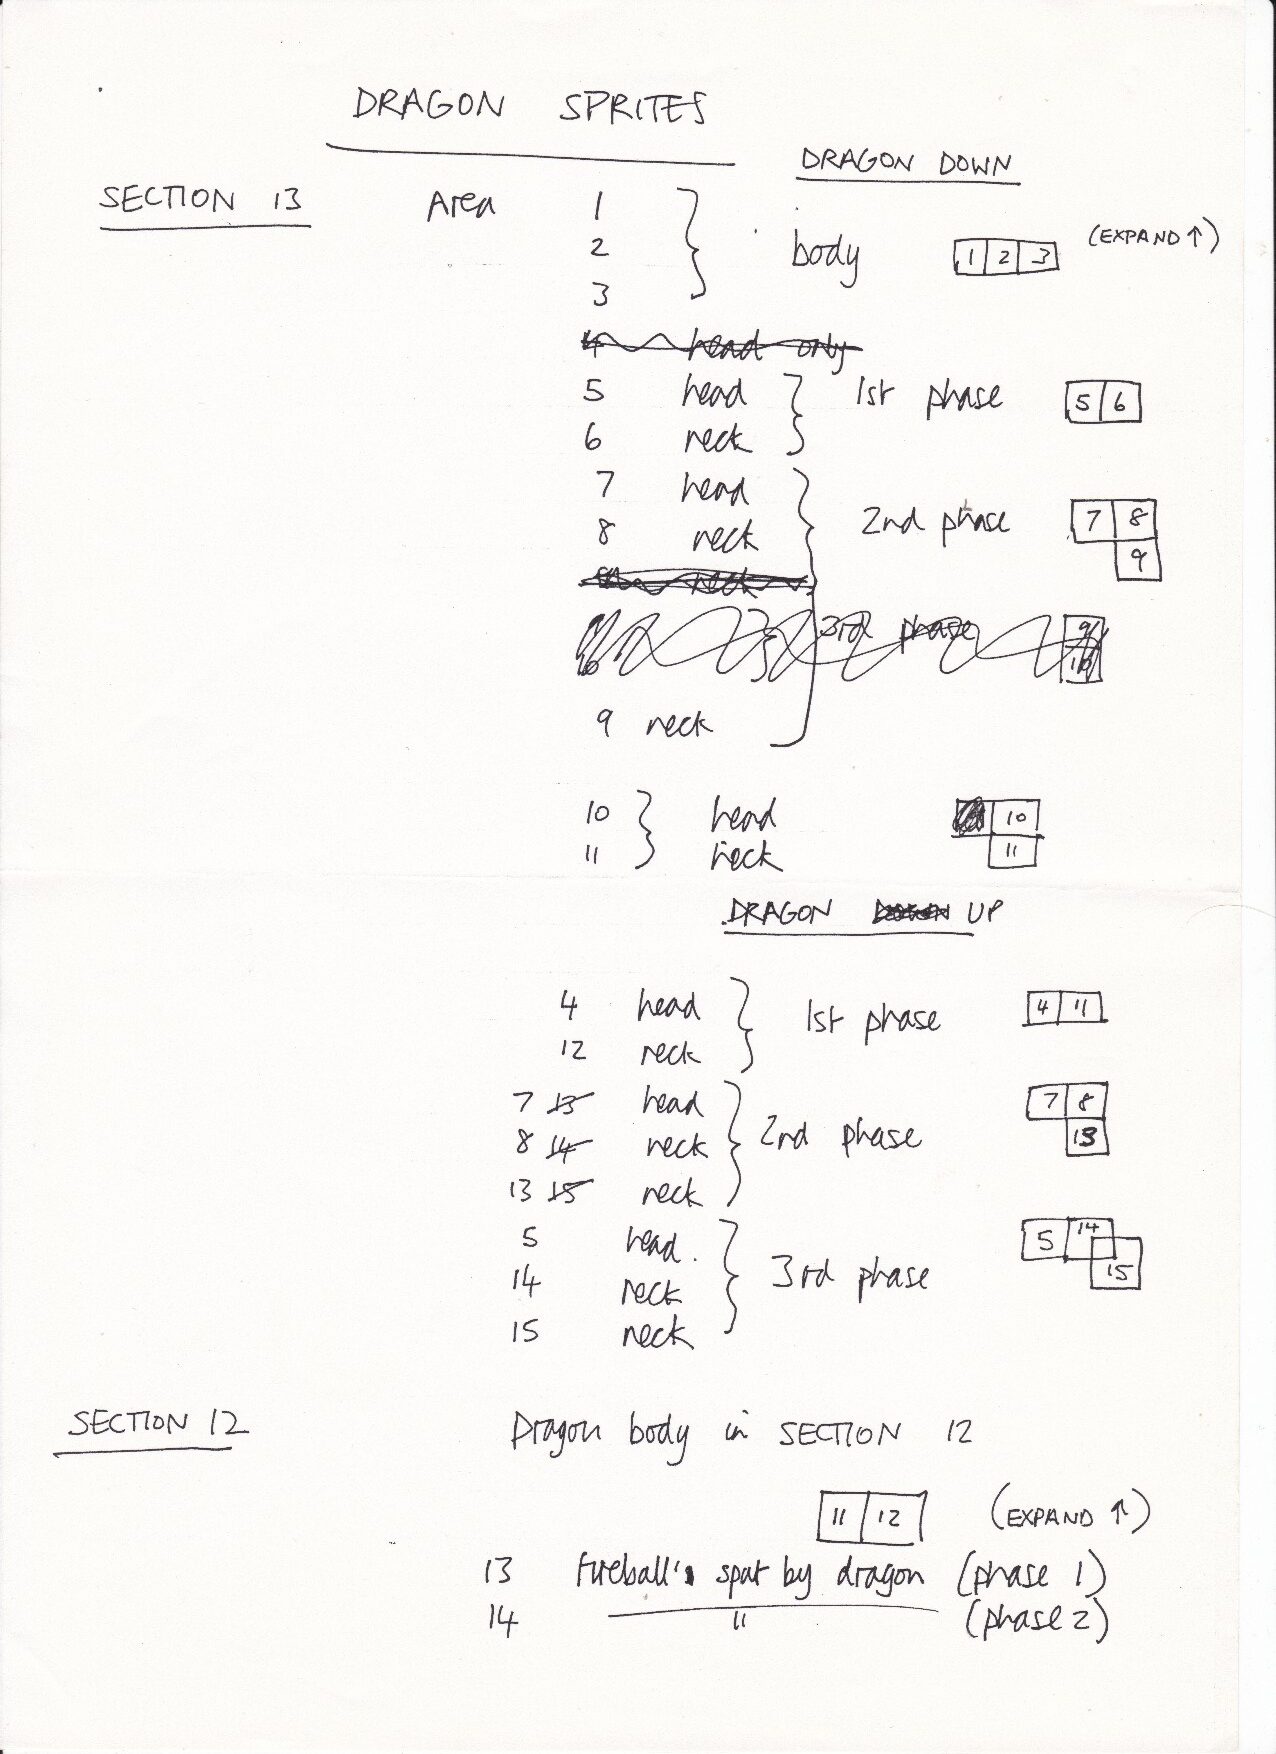 DRAGON SPRITES
DRAGON DOWN
SECTION 13 Area 1
2 body 1 2 3 (EXPAND ↑)
3
4 head only
5 head 1st phase 5 6
6 neck
7 head
8 neck 2nd phase 7 8
9
neck
3rd phase 9
10
9 neck
10 head 10
11 neck 11
DRAGON UP
4 head 1st phase 4 11
12 neck
7 13 head 7 8
8 14 neck 2nd phase 13
13 15 neck
5 head. 5 14
14 neck 3rd phase 15
15 neck
SECTION 12 Dragon body in SECTION 12
11 12 (EXPAND ↑)
13 Fireball's spat by dragon (phase 1)
14 " (phase 2)